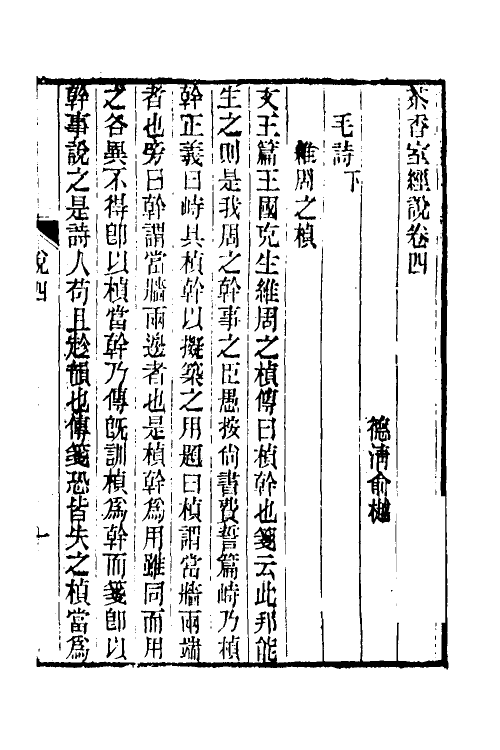 茶香室經說卷四
德清俞樾
毛詩下
維周之楨
文王篇王國克生維周之楨傳曰楨幹也箋云此邦能
生之則是我周之幹事之臣愚按尙書費誓篇峙乃楨
幹正義曰峙具楨幹以擬築之用題曰楨謂當牆兩端
者也旁曰幹謂當牆兩邊者也是楨幹爲用雖同而用
之各異不得卽以楨當幹乃傳旣訓楨爲幹而箋卽以
幹事說之是詩人苟且趁韻也傳箋恐皆失之楨當爲
說四
一